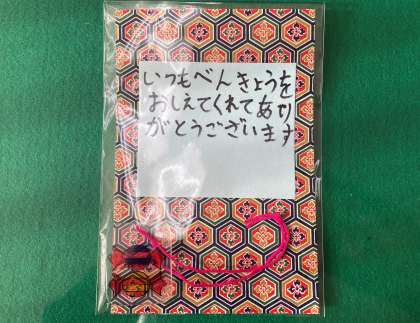 いつもべんきょうを
おしえてくれてあり
がとうございます